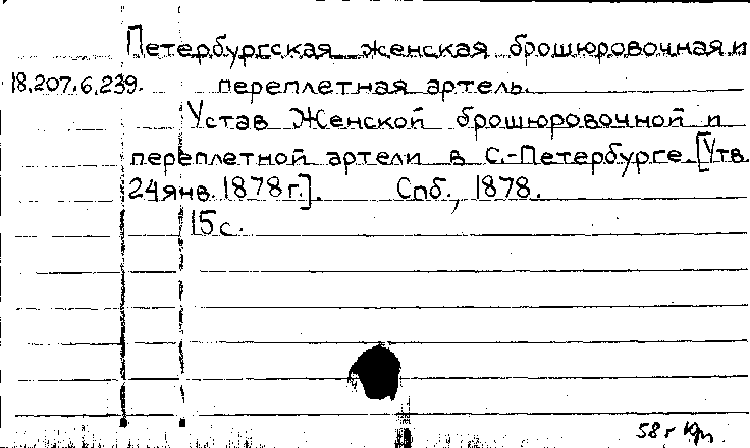 Петербургская женская брошюровочная и
18.207.6.239. переплетная артель.
Устав Женской брошюровочной и
переплетной артели в С.-Петербурге. [Утв.
24 янв. 1878 г.]. Спб., 1878.
15 с.
58 г Кр